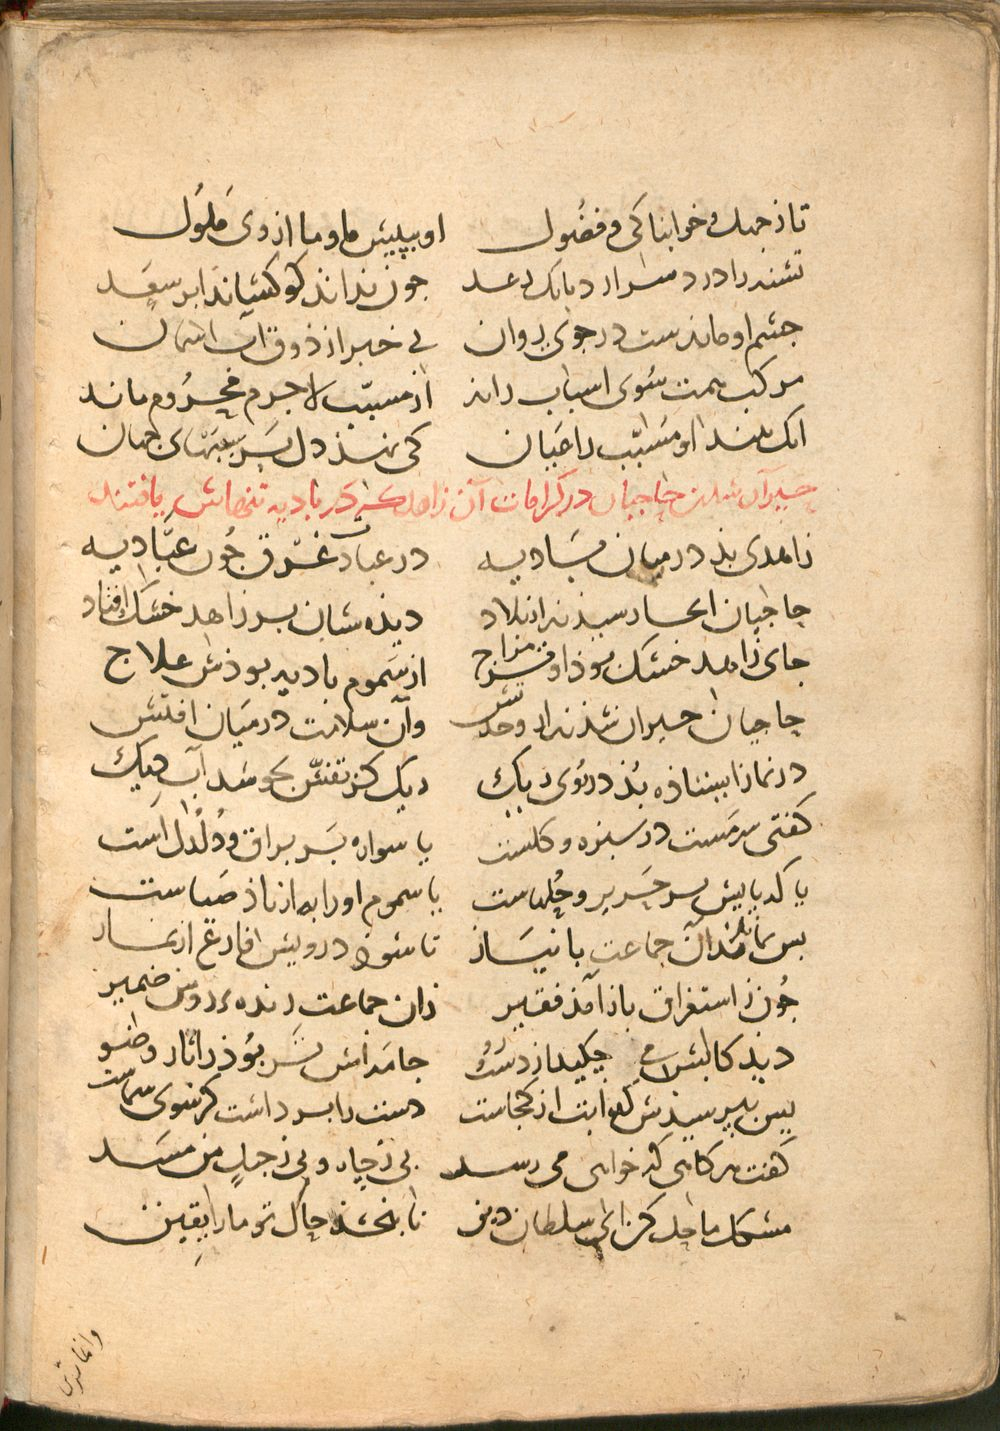 تا ز جهل و خوابناکی و فضول او بپیش ما و ما از وی ملول
تشنه را درد سر ارد بانک رعد چون نداند کو کشاند ابر سعد
چشم او ماندست در جوی روان بی خبر از ذوق آب اسمان
مرکب همت سوی اسباب راند از مسبب لاجرم محروم ماند
انک بیند او مسبب را عیان کی نهذ دل بر سببهای جهان
حیران شدن حاجیان در کرامات آن زاهد که در بادیه تنهاش یافتند
زاهدی بذ در میان بادیه در عبادت غرق چون عبادیه
حاجیان انجا رسیذند از بلاد دیذه شان بر زاهد خشک اوفتاد
جای زاهد خشک بوذ او تر مزاج از سموم بادیه بوذش علاج
حاجیان حیران شذند از وحدتش وآن سلامت در میان افتش
در نماز استاذه بذ در روی ریک ریک کز تفش بجوشد آب دیک
کفتی سرمست در سبزه و کلست یا سواره بر براق و دلدل است
یا که پایش بر حریر و حلهاست یا سموم او را به از باذ صباست
بس بماندند آن جماعت با نیاز تا شوذ درویش فارغ از نماز
چون ز استغراق باز آمذ فقیر زان جماعت زنده روشن ضمیر
دید کابش می چکید از دست و رو جامه اش تر بوذ ز اثار وضو
پس بپرسیذش که ابت از کجاست دست را برداشت کز سوی سماست
کفت هر کاهی که خواهی می رسد بی ز چاه و بی ز حبل من مسد
مشکل ما حل کن ای سلطان دین تا ببخشذ حال تو ما را یقین
وانما سری